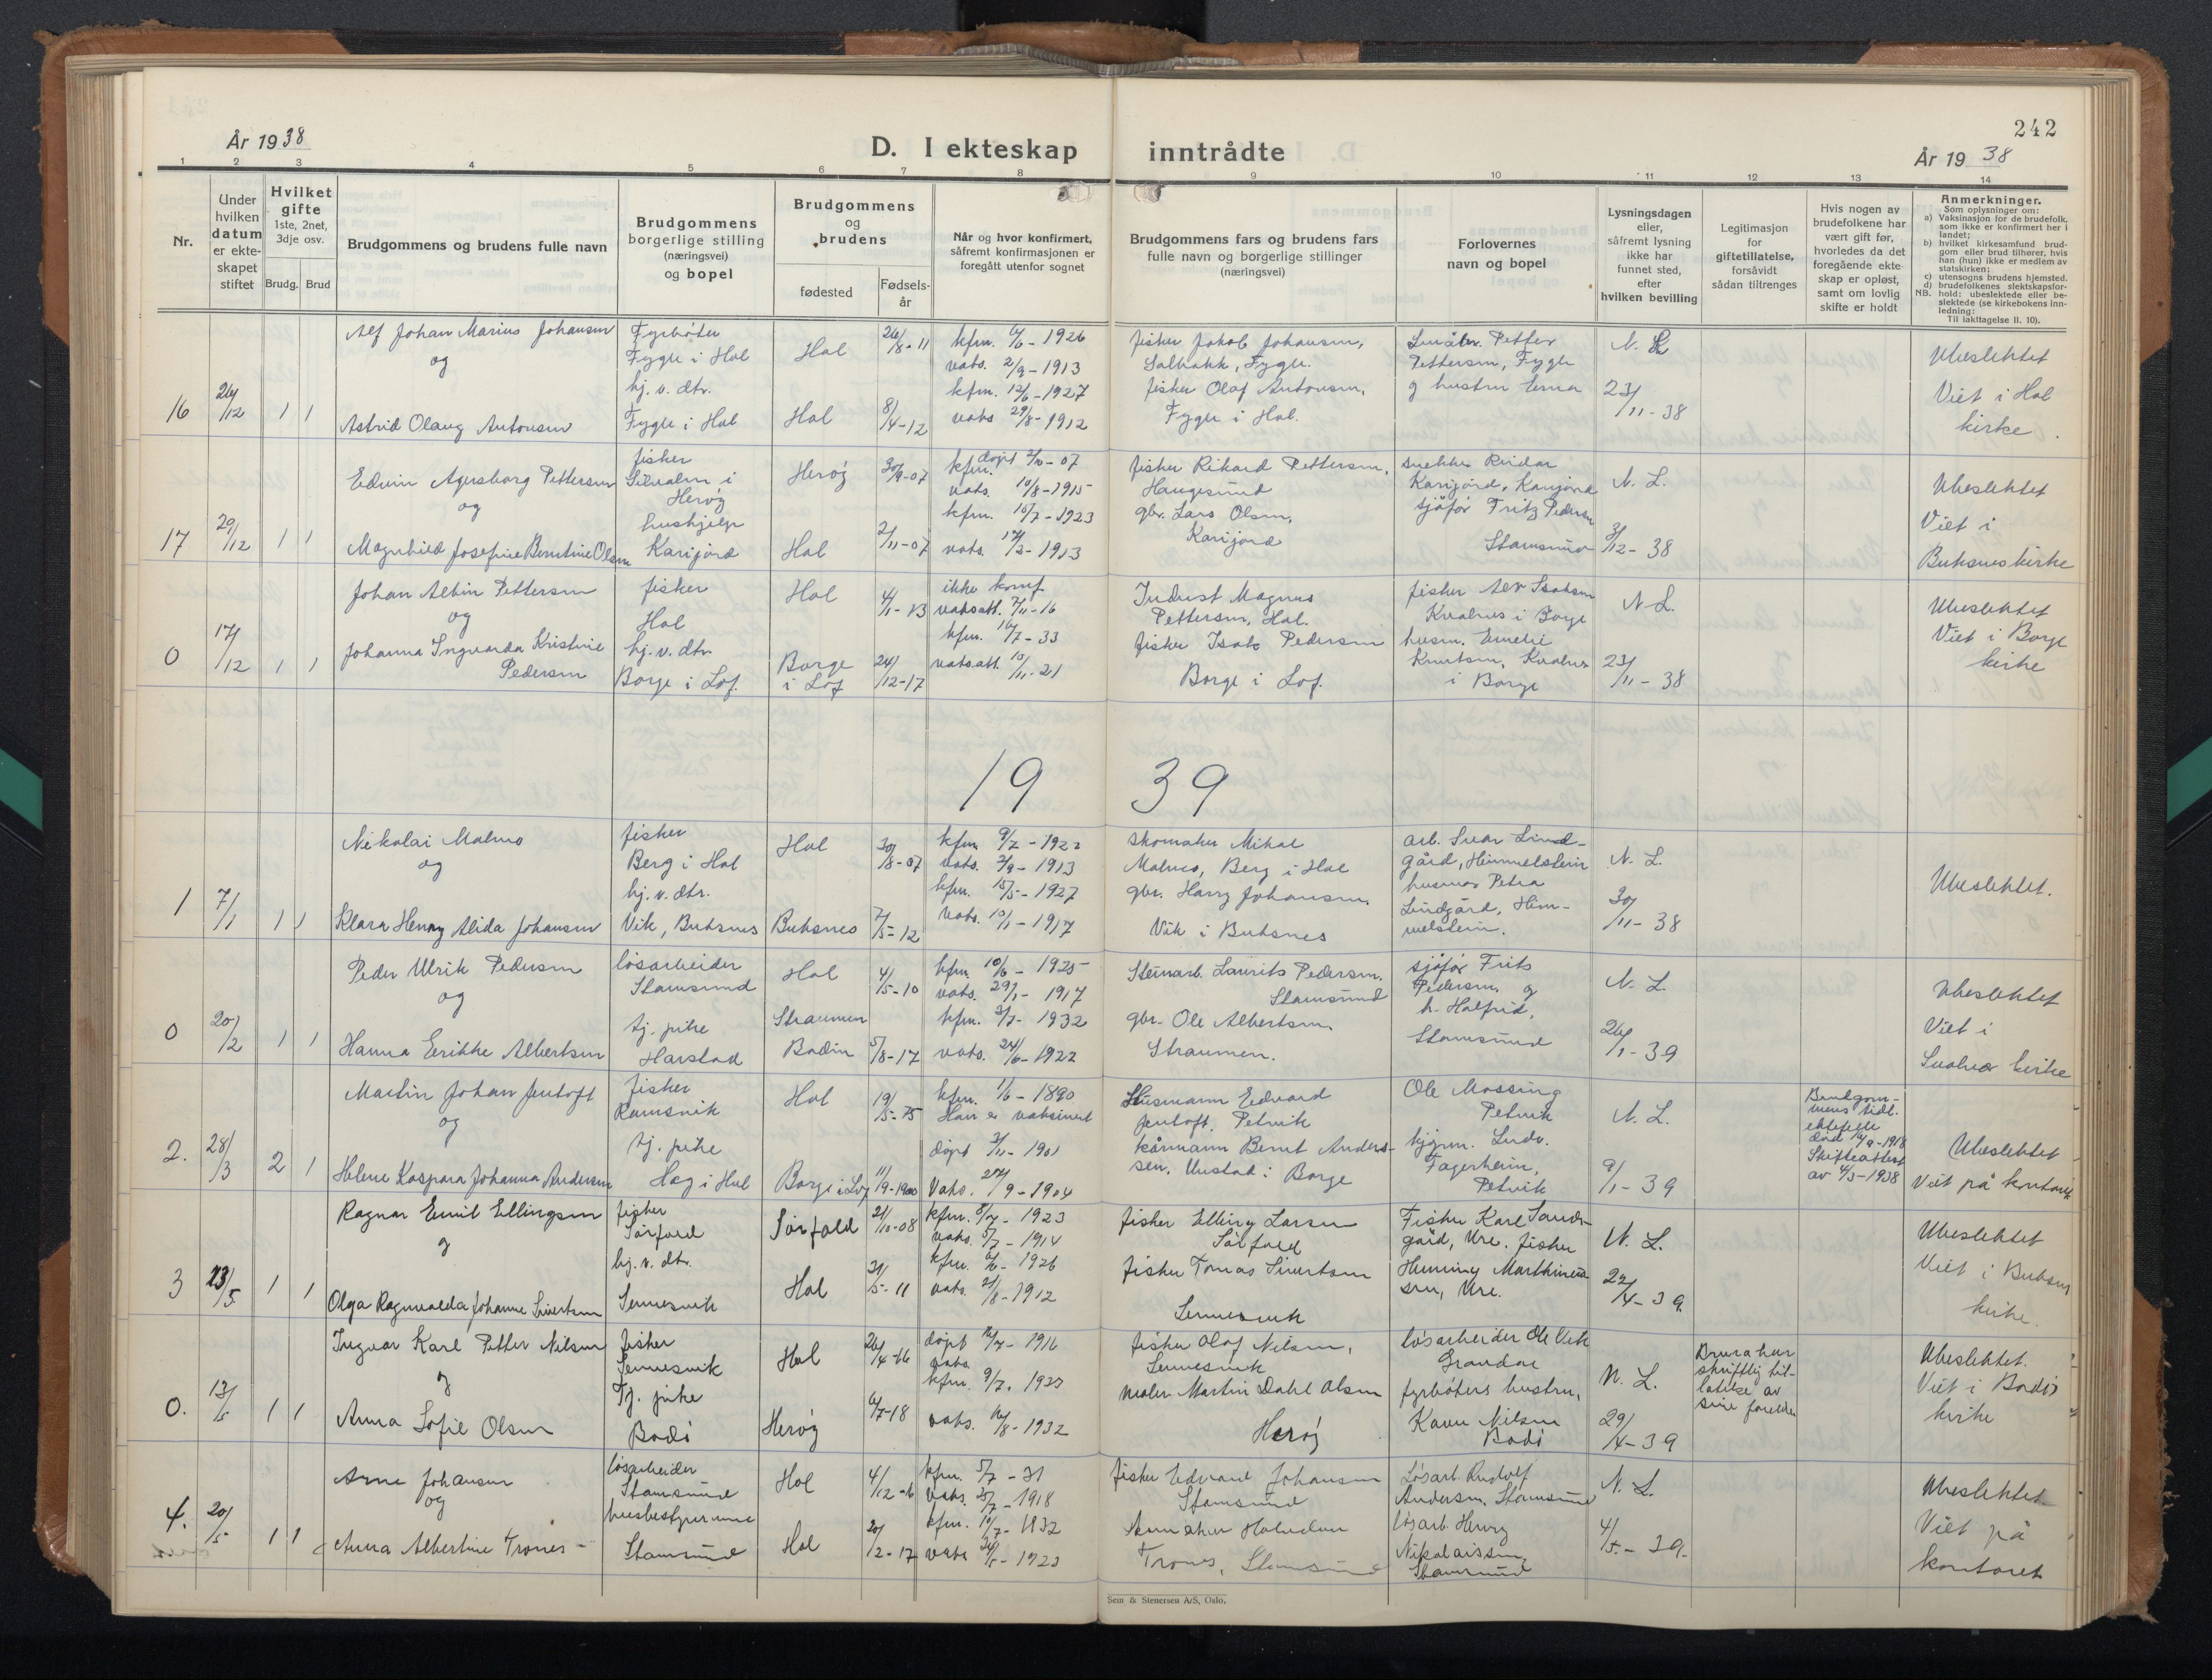 242
År 1938
D. I ekteskap inntrådte
År 1938
1 2 3 4 5 6 7 8 9 10 11 12 13 14
Nr.
Under
hvilken
datum
er ekte-
skapet
stiftet
Hvilket
gifte
1ste, 2net,
3dje osv.
Brudg. Brud
Brudgommens og brudens fulle navn
Brudgommens
borgerlige stilling
(næringsvei)
og bopel
Brudgommens
og
brudens
fødested
Fødsels-
år
Når og hvor konfirmert,
såfremt konfirmasjonen er
foregått utenfor sognet
Brudgommens fars og brudens fars
fulle navn og borgerlige stillinger
(næringsvei)
Forlovernes
navn og bopel
Lysningsdagen
eller,
såfremt lysning
ikke har
funnet sted,
efter
hvilken bevilling
Legitimasjon
for
giftetillatelse,
forsåvidt
sådan tiltrenges
Hvis nogen av
brudefolkene har
vært gift før,
hvorledes da det
foregående ekte-
skap er opløst,
samt om lovlig
skifte er holdt
Anmerkninger.
Som oplysninger om:
a) Vaksinasjon for de brudefolk,
som ikke er konfirmert her i
landet;
b) hvilket kirkesamfund brud-
gom eller brud tilhører, hvis
han (hun) ikke er medlem av
statskirken;
c) utensogns brudens hjemsted.
d) brudefolkenes slektskapsfor-
NB. hold: ubeslektede eller be-
slektede (se kirkebokens inn-
ledning:
Til iakttagelse II. 10).
16
26/12
1 1
Alf Johan Marius Johansen
og
Astrid Olaug Antonsen
Fyrbøter
Fygle i Hol
hj. v. dtr.
Fygle i Hol
Hol
Hol
26/8-11
8/4-12
kfm. 6/6-1926
vaks. 2/9-1913
kfm. 12/6-1927
vaks 29/8-1912
fisker Jakob Johansen,
Fygle.
fisker Olaf Antonsen,
Fygle i Hol.
Petter
Pettersen, Fygle
og hustru Erna
N. L.
23/11-38
Ubeslektet
Viet i Hol
kirke.
17
29/12
1 1
Edvin Agersborg Pettersen
og
Magnhild Josefine Berntine Olsen
fisker
i
Herøy
hushjelp
Karijord
Herøy
Hol
30/9-07
2/11-07
kfm. døpt 2/10-07
vaks. 10/8-1915
kfm. 15/7-1923
vaks. 17/2-1913
fisker Rikard Pettersen,
Haugesund
gbr. Lars Olsen,
Karijord
snekker Reidar
Karijord, Karijord
sjåfør Fritz Pedersen
Stamsund
N. L.
3/12-38
Ubeslektet
Viet i
Buksnes kirke
0
17/12
1 1
Johan Albin Pettersen
og
Johanna Ingvarda Kristine
Pedersen
fisker
Hol
hj. v. dtr.
Borge i Lof.
Hol
Borge
i Lof
4/1-13
24/12-17
ikke konf.
vaksatt. 7/11-16
kfm. 16/7-33
vaksatt. 10/11-21
Magnus
Pettersen, Hol.
fisker Isak Pedersen
Borge i Lof.
fisker Alv Isaksen
Kvalnes i Borge
husm. Emelie
Knutsen, Kvalnes
i Borge
N. L.
23/11-38
Ubeslektet
Viet i Borge
kirke
19 39
1
7/1
1 1
Nikolai Malnes
og
Klara Henny Alida Johansen
fisker
Berg i Hol
hj. v. dtr.
Vik, Buksnes
Hol
Buksnes
30/8-07
7/5-12
kfm 9/7-1922
vaks. 2/9-1913
kfm. 15/5-1927
Vaks. 10/1-1917
skomaker Mikal
Malnes, Berg i Hol
gbr. Harry Johansen,
Vik i Buksnes
arb. Ivar Lind-
gård, Himmelstein
husmor Petra
Lindgård, Him-
melstein.
N. L.
30/11-38
Ubeslektet.
0
20/2
1 1
Peder Ulrik Pedersen
og
Hanna Erikke Albertsen
løsarbeider
Stamsund
tj. pike
Harstad
Hol
Straumen
Bodin
4/5-10
5/8-17
kfm. 10/6-1925
vaks. 29/1-1917
kfm. 3/7-1932
vaks. 24/6-1922
Steinarb. Laurits Pedersen.
Stamsund
gbr. Ole Albertsen,
Straumen.
sjåfør Frits
Pedersen og
h. Halfrid,
Stamsund
N. L.
26/1-39
Ubeslektet
Viet i
Svolvær kirke
2.
28/3
2 1
Martin Johan Jentoft
og
Helene Kaspara Johanna Andersen
fisker
Ramsvik
tj. pike
Hag i Hol
Hol
Borge i Lof
19/5-75
11/9-1900
kfm. 1/6-1890
Han er vaksinert
døpt 3/11-1901
Vaks. 27/9-1904
Husmann Edvard
Jentoft, Petvik
kårmann Bernt Anders-
sen, Unstad i Borge
Ole Mossing
Petvik
kjøpm. Ludv.
Fagerheim,
Petvik
N. L.
9/1-39
Brudgom-
mens tidl.
ektefelle
død 14/9-1918
Skifteattest
av 4/3-1938
Ubeslektet
Viet på kontoret
3
23/5
1 1
Ragnar Emil Ellingsen
og
Olga Ragnvalda Johanne Sivertsen
fisker
Sørfold
hj. v. dtr.
Sennesvik
Sørfold
Hol
21/10-08
31/5-11
kfm. 8/7-1923
vaks. 5/7-1914
kfm. 6/6-1926
vaks. 21/8-1912
fisker Elling Larsen
Sørfold
fisker Tomas Sivertsen
Sennesvik
Fisker Karl Sand-
gård, Ure. fisker
Henning Marthinus-
sen, Ure.
N. L.
22/4-39.
Ubeslektet
Viet i Buksnes
kirke.
0.
13/5
1 1
Ingvar Karl Petter Nilsen
og
Anna Sofie Olsen
fisker
Sennesvik
Tj. pike
Bodø
Hol
Herøy
26/4-16
6/7-18
døpt 16/7-1916
vaks
kfm. 9/7. 1933
vaks. 16/8-1932
fisker Olaf Nilsen,
Sennesvik
maler Martin Dahl Olsen
Herøy
løsarbeider Ole Vik
fyrbøters hustru,
Nilsen
Bodø
N. L.
29/4-39
Brura har
skriftlig til-
latelse av
sine foreldre
Ubeslektet.
Viet i Bodø
kirke
4.
20/5
1 1
Arne Johansen
og
Anna Albertine Trones
løsarbeider
Stamsund
husbestyrerinne
Stamsund
Hol
Hol
4/12-16
20/2-17
kfm. 5/7-31
vaks. 25/7-1918
kfm. 10/7-1932
vaks 24/5-1923
fisker Edvard Johansen
Stamsund
Halvdan
Trones, Stamsund
Løsarb. Rudolf
Andersen, Stamsund
løsarb. Henry
Nikolaissen,
Stamsund
N. L.
4/5-39.
Ubeslektet
Viet på
kontoret
Sem & Stenersen A/S, Oslo.